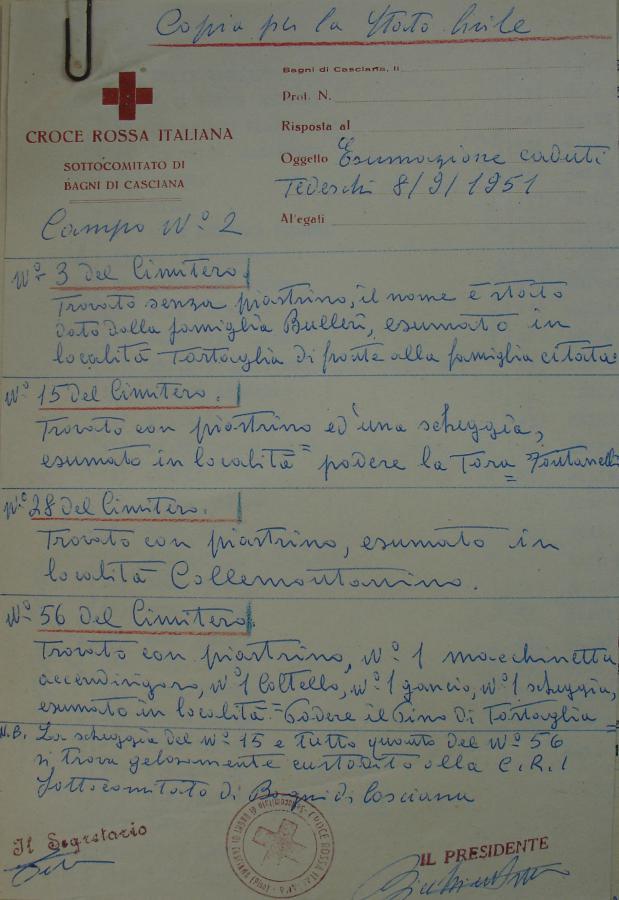 Copia per lo Stato Civile
CROCE ROSSA ITALIANA
SOTTOCOMITATO DI
BAGNI DI CASCIANA
Bagni di Casciana, li
Prot. N.
Risposta al
Oggetto Esumazione caduti
Tedeschi 8/9/1951
Allegati
Campo Nº 2
Nº 3 del Cimitero.
Trovato senza piastrino, il nome è stato
dato dalla famiglia Bulleri, esumato in
località Tortaglia di fronte alla famiglia citata.
Nº 15 del Cimitero.
Trovato con piastrino ed'una scheggia,
esumato in località = podere la Tora = Fontanelli
Nº 28 del Cimitero.
Trovato con piastrino, esumato in
località Collemontanino.
Nº 56 del Cimitero.
Trovato con piastrino, Nº 1 macchinetta
accendisigaro, Nº 1 Coltello, Nº 1 gancio, Nº 1 scheggia,
esumato in località = Podere il Pino di Tortaglia =
N.B. La scheggia del Nº 15 e tutto quanto del Nº 56
si trova gelosamente custodito alla C.R.I
Sottocomitato di Bagni di Casciana
Il Segretario
IL PRESIDENTE
CROCE ROSSA ITALIANA